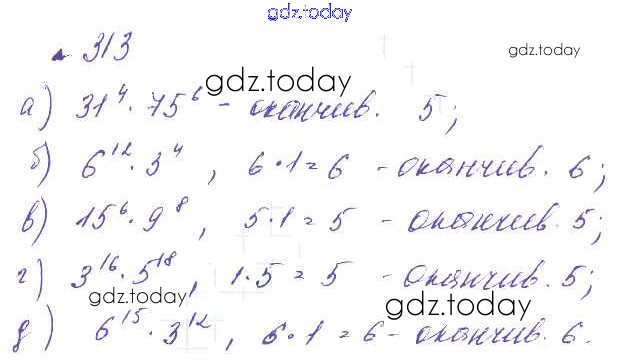 gdz.today
313
gdz.today
gdz.today
а) 31⁴ · 75⁶ - оканчив. 5;
б) 6¹² · 3⁴, 6 · 1 = 6 - оканчив. 6;
в) 15⁶ · 9⁸, 5 · 1 = 5 - оканчив. 5;
г) 3¹⁶ · 5¹⁸, 1 · 5 = 5 - оканчив. 5;
gdz.today
gdz.today
д) 6¹⁵ · 3¹², 6 · 1 = 6 - оканчив. 6.